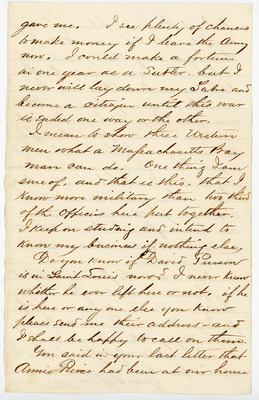 gave me. I see plenty of chances
to make money if I leave the Army
now. I could make a fortune
in one year as a Sutler. but I
never will lay down my Sabre and
become a citizen until this war
is ended one way or the other.
I mean to show these Western
men what a Massachusetts Bay
man can do. One thing I am
sure of, and that is this. that I
know more military than two third
of the Officers here put together.
I keep on studing and intend to
know my business if nothing else,
Do you know if David
is in Saint Louis now? I never knew
whether he ever left here or not, if he
is here or any one else you know
please send me their address and
I shall be happy to call on them.
You said in your last letter that
Annie Peirce had been at our house